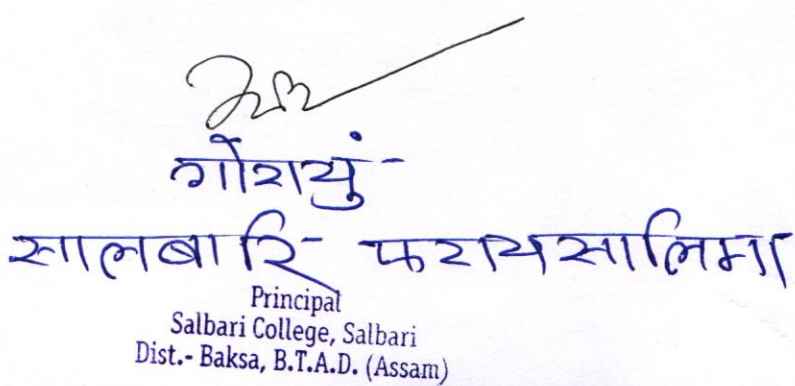 गोरायुं-
सालबारि फरायसालिमा
Principal
Salbari College, Salbari
Dist.- Baksa, B.T.A.D. (Assam)